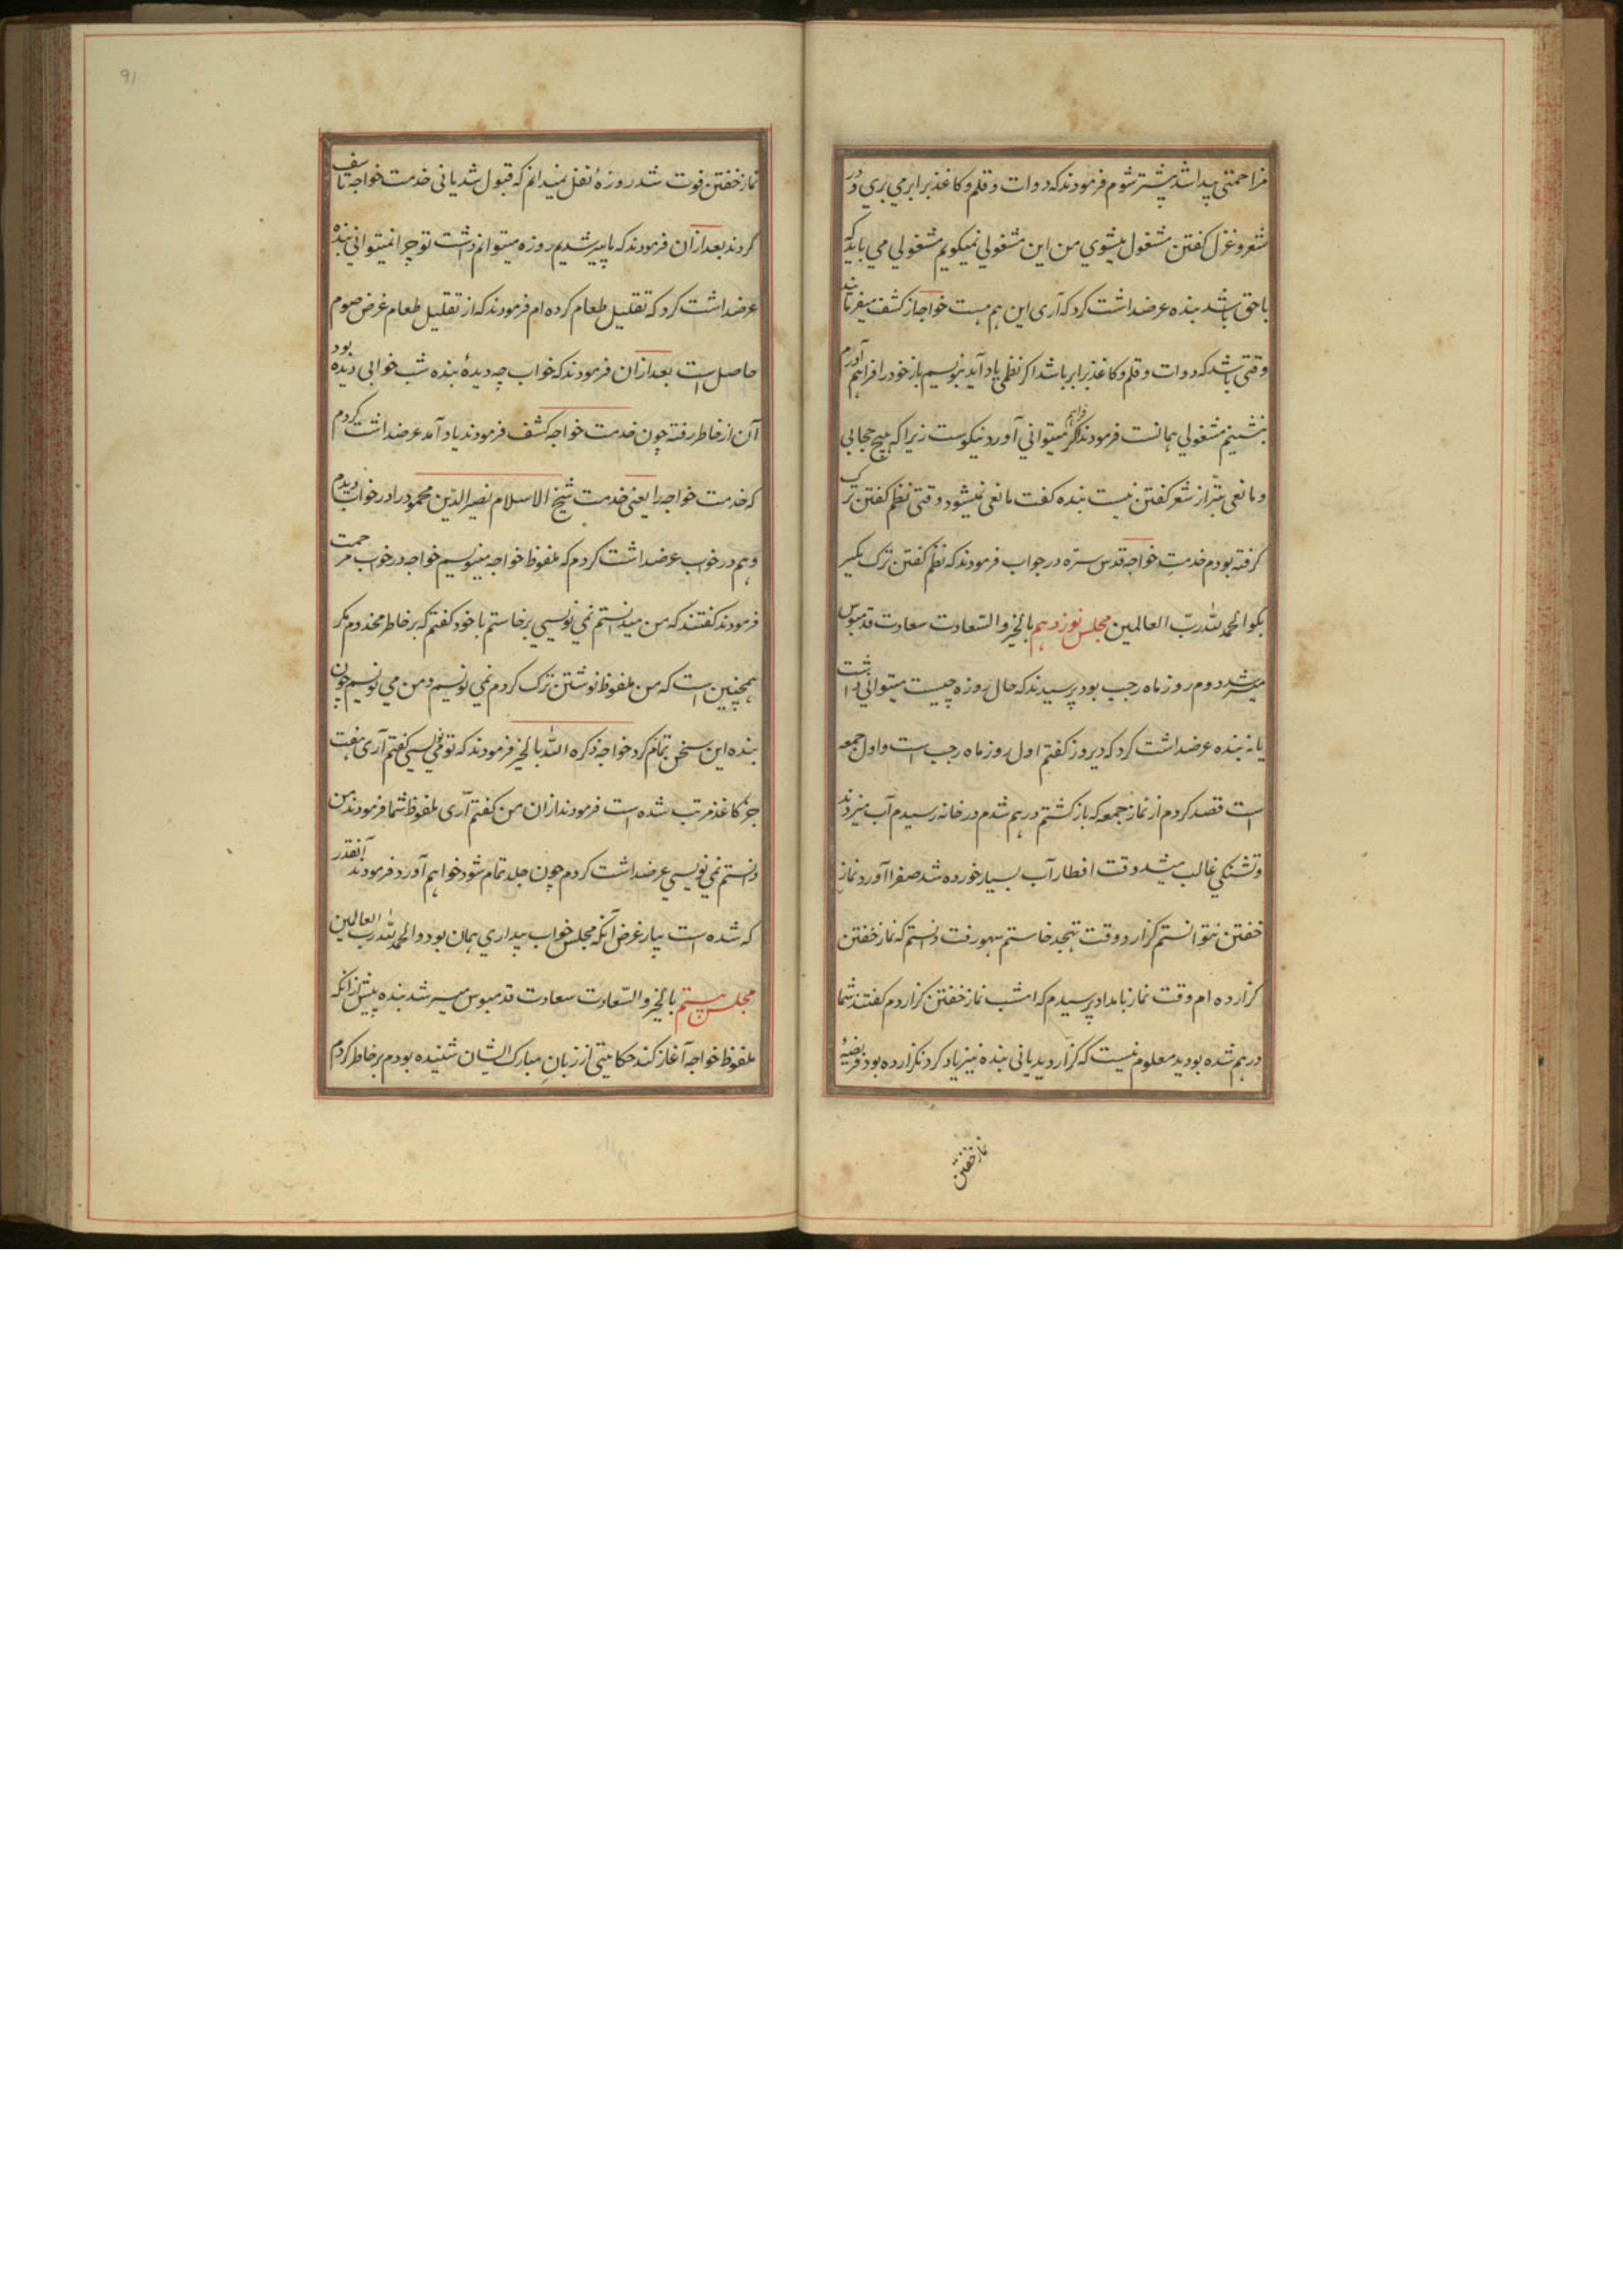 مزاحمتی پیدا شد پیشتر شوم فرمودند که دوات و قلم و کاغذ برابر می بری و در
شعر و غزل کفتن مشغول میشوی من این مشغولی نمیکویم مشغولی می باید که
با حق باشد بنده عرضداشت کرد که آری این هم هست خواجه از کشف میفرمایند
وقتی باشد که دوات و قلم و کاغذ برابر باشد اکر نظمی یاد آید بنویسم باز خود را فراهم آورم
بنشینم مشغولی همانست فرمودند اکر فراهم میتوانی آورد نیکوست زیرا که هیچ حجابی
و مانعی بتر از شعر کفتن نیست بنده کفت مانعی نمیشود وقتی نظم کفتن ترک
کرفته بودم خدمتِ خواجه قدس سرّه در جواب فرمودند که نظم کفتن ترک مکیر
بکو الحمد لله ربّ العالمین مجلس نوزدهم بالخیر والسّعادت سعادت قدمبوس
میسر شد دوم روز ماه رجب بود پرسیدند که حال روزه چیست میتوانی داشت
یا نه بنده عرضداشت کرد که دیروز کفتم اول روز ماه رجب است و اول جمعه
است قصد کردم از نماز جمعه که باز کشتم درهم شدم در خانه رسیدم آب میزدند
و تشنکی غالب میشد وقت افطار آب بسیار خورده شد صفرا آورد نماز
خفتن نتوانستم کزارد وقت تهجد خاستم سهو رفت دانستم که نماز خفتن
کزارده ام وقت نماز بامداد پرسیدم که امشب نماز خفتن کزاردم کفتند شما
درهم شده بودید معلوم نیست که کزاردید یا نی بنده نیز یاد کرد نکزارده بود فریضهٔ
نماز خفتن
91
نماز خفتن فوت شد روزهٔ نفل نمیدانم که قبول شد یا نی خدمت خواجه تاسف
کردند بعد ازان فرمودند که ما پیر شدیم روزه میتوانم داشت تو چرا نمیتوانی بنده
عرضداشت کرد که تقلیل طعام کرده ام فرمودند که از تقلیل طعام غرض صوم
حاصل است بعد ازان فرمودند که خواب چه دیدهٔ بنده شب خوابی دیده بود
آن از خاطر رفته چون خدمت خواجه کشف فرمودند یاد آمد عرضداشت کردم
که خدمت خواجه را یعنی خدمت شیخ الاسلام نصیر الدین محمود را در خواب دیدم
و هم در خوب عرضداشت کردم که ملفوظ خواجه مینویسم خواجه در خوب مرحمت
فرمودند کفتند که من میدانستم نمی نویسی برخاستم با خود کفتم که بر خاطر مخدوم مکر
همچنین است که من ملفوظ نوشتن ترک کردم نمی نویسم و من می نویسم چون
بنده این سخن تمام کرد خواجه ذکره الله بالخیر فرمودند که تو می نویسی کفتم آری هفت
جز کاغذ مرتب شده است فرمودند ازان من کفتم آری ملفوظ شما فرمودند من
دانستم نمی نویسی عرضداشت کردم چون جلد تمام شود خواهم آورد فرمودند آنقدر
که شده است بیار غرض آنکه مجلس خواب بیداری همان بود والحمد لله رب العالمین
مجلس بیستم بالخیر والسّعادت سعادت قدمبوس میسر شد بنده پیش ازانکه
ملفوظ خواجه آغاز کند حکایتی از زبانِ مبارک ایشان شنیده بودم بر خاطر کردم